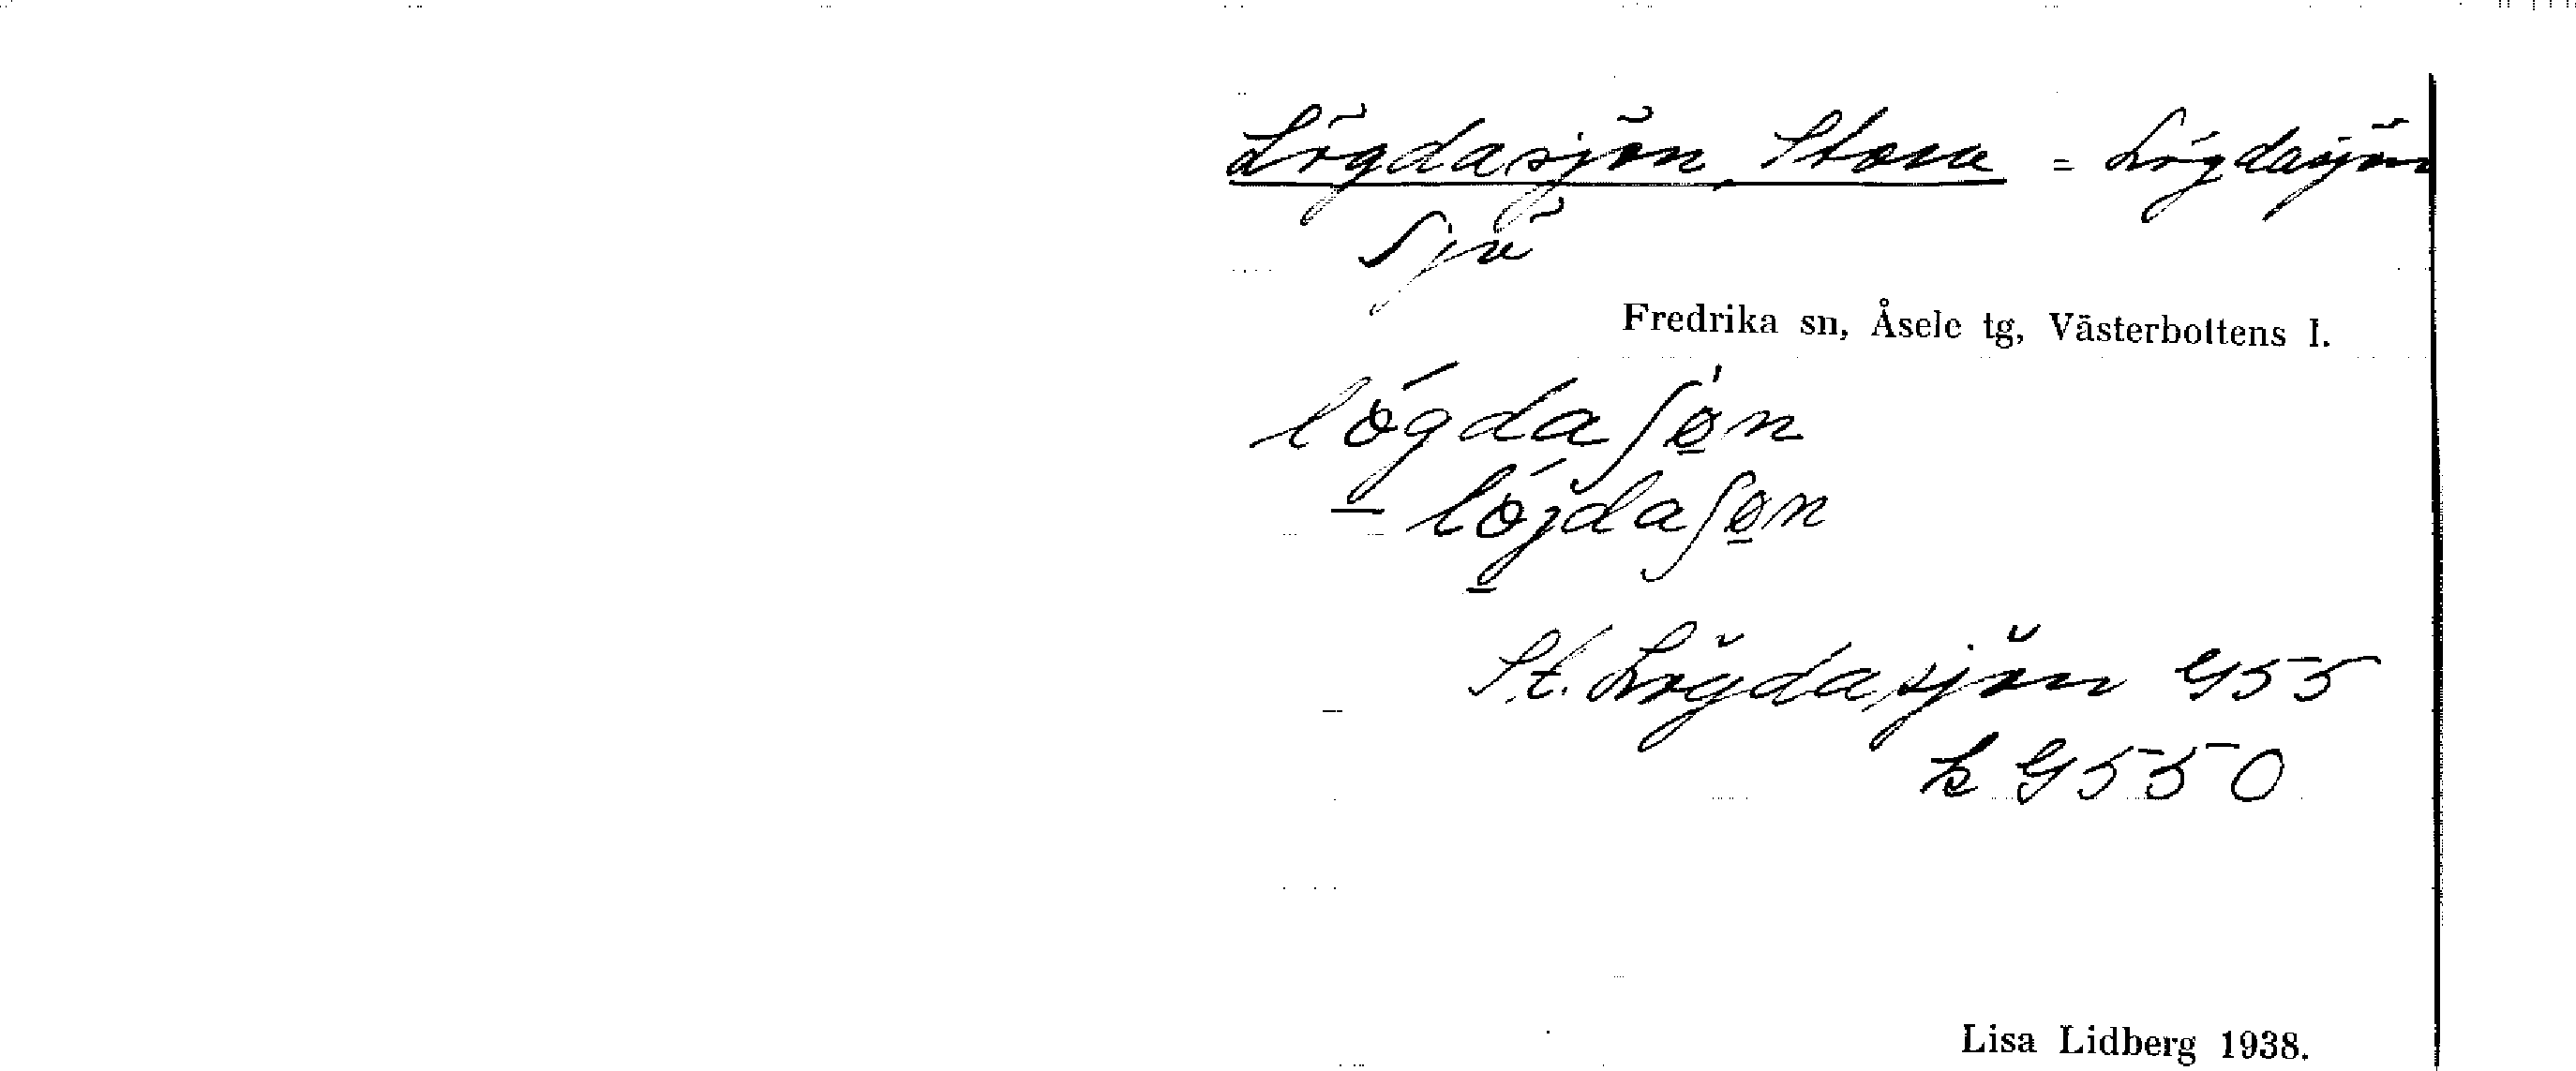 Lögdasjön, Stora = Lögdasjön
Sjö
Fredrika sn, Åsele tg, Västerbottens l.
lögdaʃøn
löjdaʃøn
St. Lögdasjön G55
k G550
Lisa Lidberg 1938.